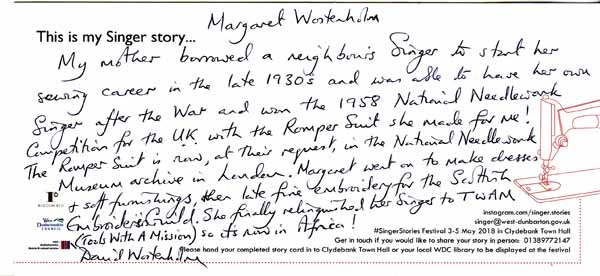 Margaret Wostenholm
This is my Singer story...
My mother borrowed a neighbour's Singer to start her
sewing career in the late 1930s and was able to have her own
Singer after the War and won the 1958 National Needlework
Competition for the UK with the Romper Suit she made for me!
The Romper Suit is now, at their request, in the National Needlework
Museum archive in London. Margaret went on to make dresses
& soft furnishings, then late fine embroidery for the Scottish
Embroiderers Guild. She finally relinquished her Singer to TWAM
(Tools With A Mission) so its now in Africa!
David Wostenholm
West
Dunbartonshire
COUNCIL
instagram.com/singer.stories
singer@west-dunbarton.gov.uk
#SingerStories Festival 3-5 May 2018 in Clydebank Town Hall
Get in touch if you would like to share your story in person: 01389772147
Please hand your completed story card in to Clydebank Town Hall or your local WDC library to be displayed at the festival